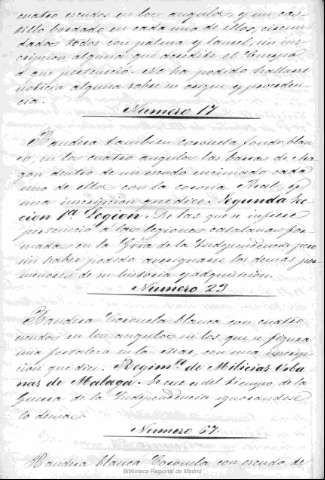 cuatro escudos en los angulos, y un cas-
tillo bordado en cada uno de ellos, circun-
dados todos con palma y laurel, sin ins-
cripcion alguna que acredite el Cuerpo
á que perteneció. No ha podido hallarse
noticia alguna sobre su origen y proceden-
cia.
Numero 17
Bandera tambien coronela fondo blan-
co, en los cuatro angulos las barras de
gon dentro de un escudo encimado cada
uno de ellos con la corona Real, y
una inscripcion que dice: Segunda Le-
cion 1ª Legion. De las que se infiere
perteneció á las legiones catalanas for-
madas en la Grra de la Independencia, sin
haber podido averiguarse los demas por-
menores de su historia y adquisicion.
Numero 23
Bandera Coronela blanca con cuatro
escudos en los angulos en los que se figura
una fortaleza en la mar, con una inscrip-
cion que dice: Regimto de Milicias Urba-
nas de Malaga. Se cree del tiempo de la
Guerra de la Independencia ignorandose
lo demas.
Numero 67
Bandera blanca Coronela con escudo de
Biblioteca Regional de Madrid